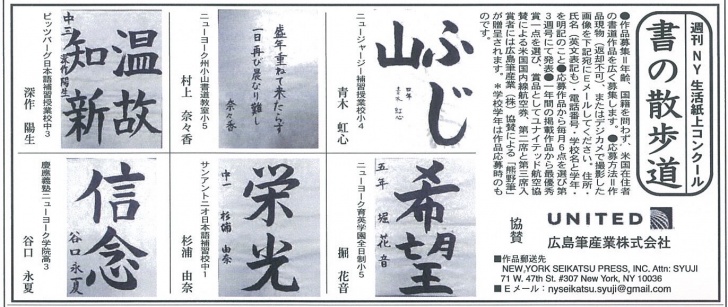 週刊NY生活紙上コンクール
書の散歩道
●作品募集＝年齢、国籍を問わず、米国在住者
の書道作品を広く募集します。●応募方法＝作
品現物（返却不可）、またはデジカメで撮影した
画像を下記宛にＥメールしてください。住所・
氏名（英文表記も）・電話番号・学校名と学年・
を明記のこと●応募作品から毎月６点を選び第
３週号にて発表●一年間の掲載作品から最優秀
賞一点を選び、賞品としてユナイテッド航空協
賛による米国国内線航空券、第二席と第三席入
賞者には広島筆産業（株）協賛による「熊野筆」
が贈呈されます。＊学校学年は作品応募時のも
のです。
協賛
UNITED
広島筆産業株式会社
■作品郵送先
NEW,YORK SEIKATSU PRESS, INC. Attn: SYUJI
71 W. 47th St. #307 New York, NY 10036
■Ｅメール：nyseikatsu.syuji@gmail.com
ふじ
山
四年 青木虹心
ニュージャージー補習授業校小４
青木 虹心
盛年重ねて来たらず
一日再び晨なり難し
奈々香
ニューヨーク州小山書道教室小５
村上 奈々香
温故
知新
中三 深作陽生
ピッツバーグ日本語補習授業校中３
深作 陽生
希望
五年 堀花音
ニューヨーク育英学園全日制小５
堀 花音
栄光
中一 杉浦由奈
サンアントニオ日本語補習校中１
杉浦 由奈
信念
谷口永夏
慶應義塾ニューヨーク学院高３
谷口 永夏